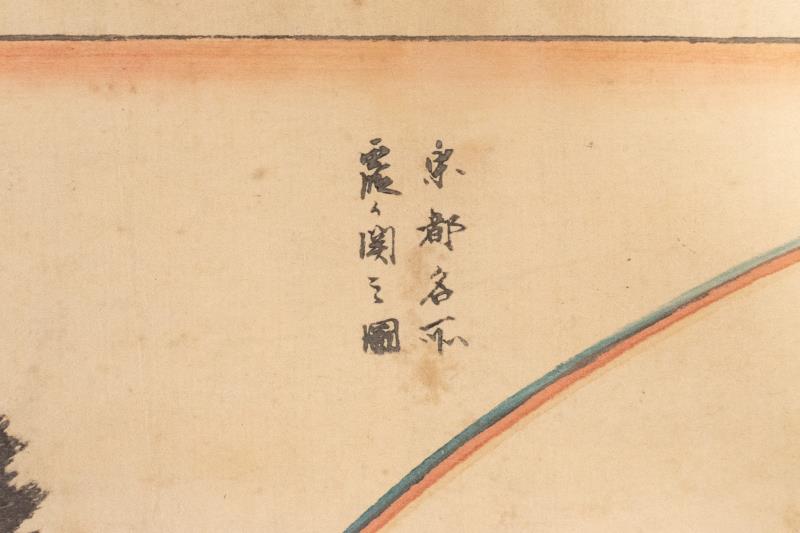 東都名所
霞ヶ関之圖